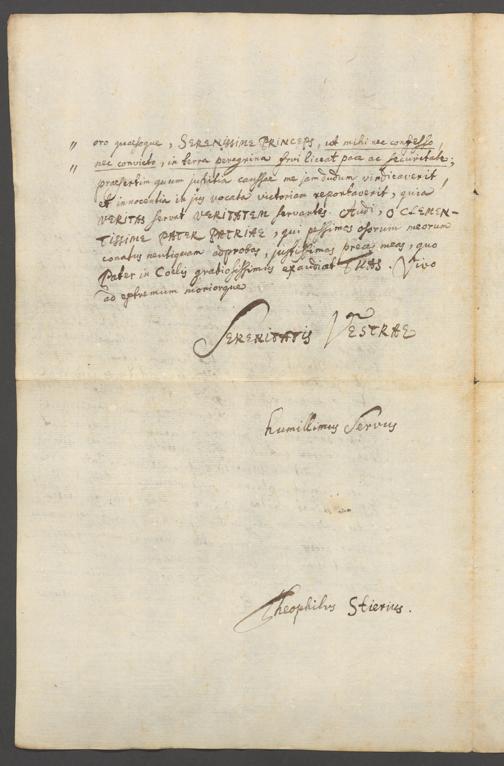 " oro quaesoque, SERENISSIME PRINCEPS, ut mihi nec confesso,
" nec convicto, in terra peregrina frui liceat pace ac securitate;
praesertim quum justitia caussae me jam dudum vindicaverit,
et innocentia in jus vocata victoriam reportaverit, quia
VERITAS servat VERITATEM servantes. Audi, O CLEMEN-
TISSIME PATER PATRIAE, qui pessimos osorum meorum
conatus neutiquam adprobas, justissimas preces meas, quo
Pater in Coelis gratiosissimus exaudiat TUAS. Vivo
ad extremum moriorque
SERENITATIS VESTRAE
humillimus Servus
Theophilus Stierius.